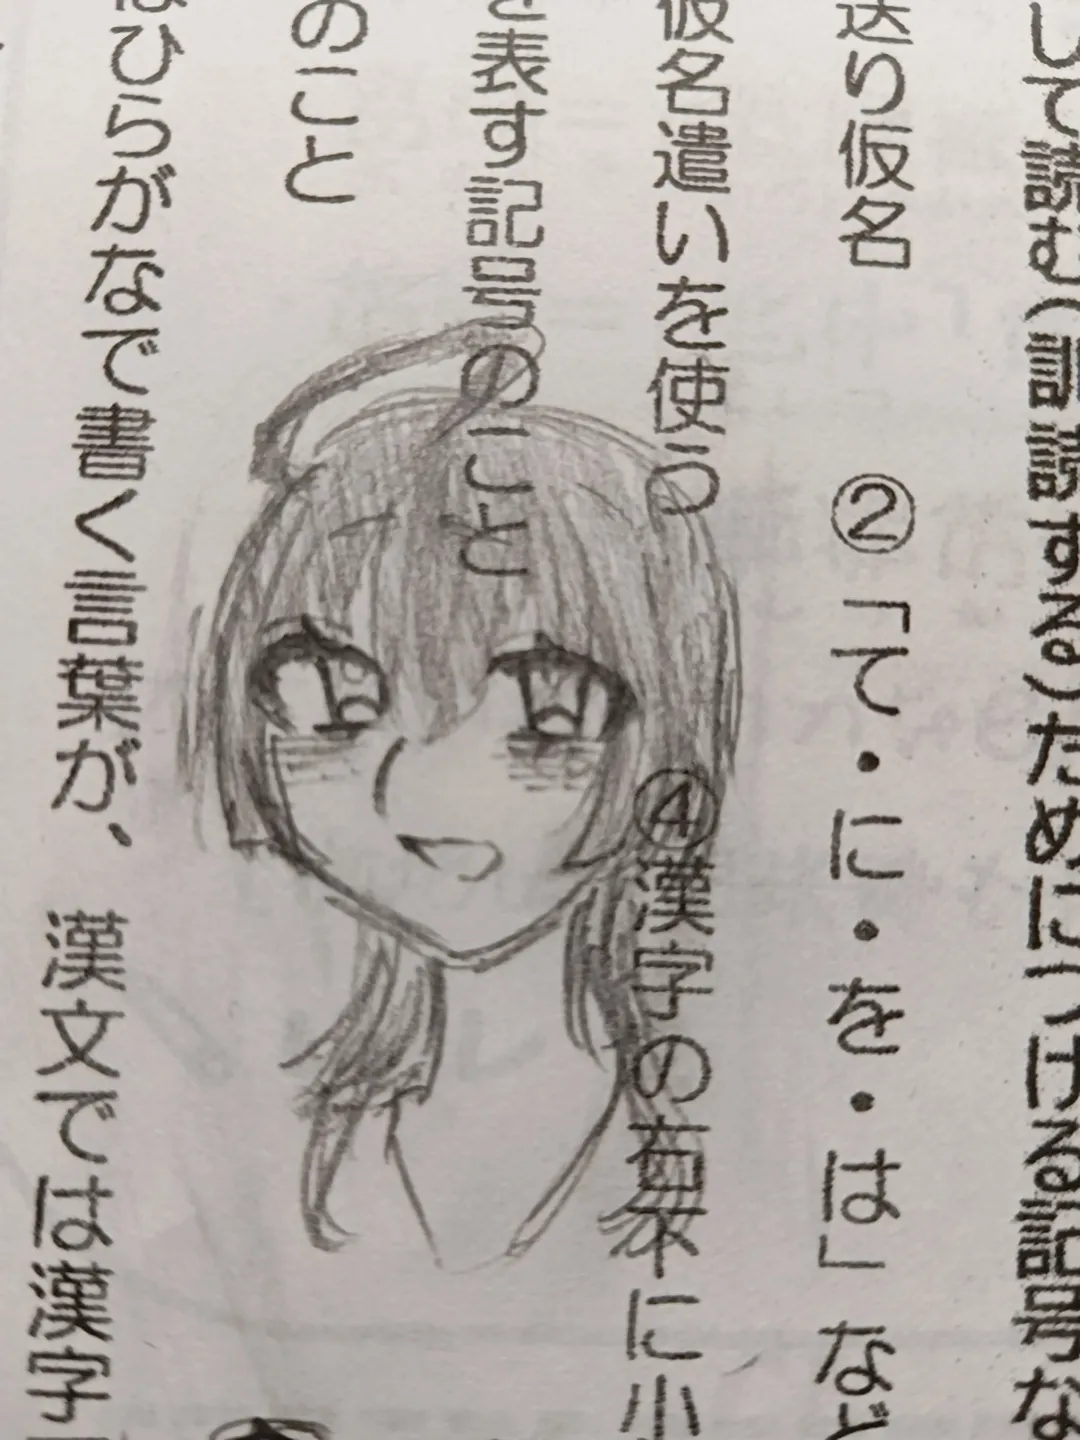 して読む(訓読する)ために付ける記号な
送り仮名　②「て・に・を・は」など
仮名遣いを使う　④漢字の右下に小
を表す記号のこと
のこと
はひらがなで書く言葉が、漢文では漢字